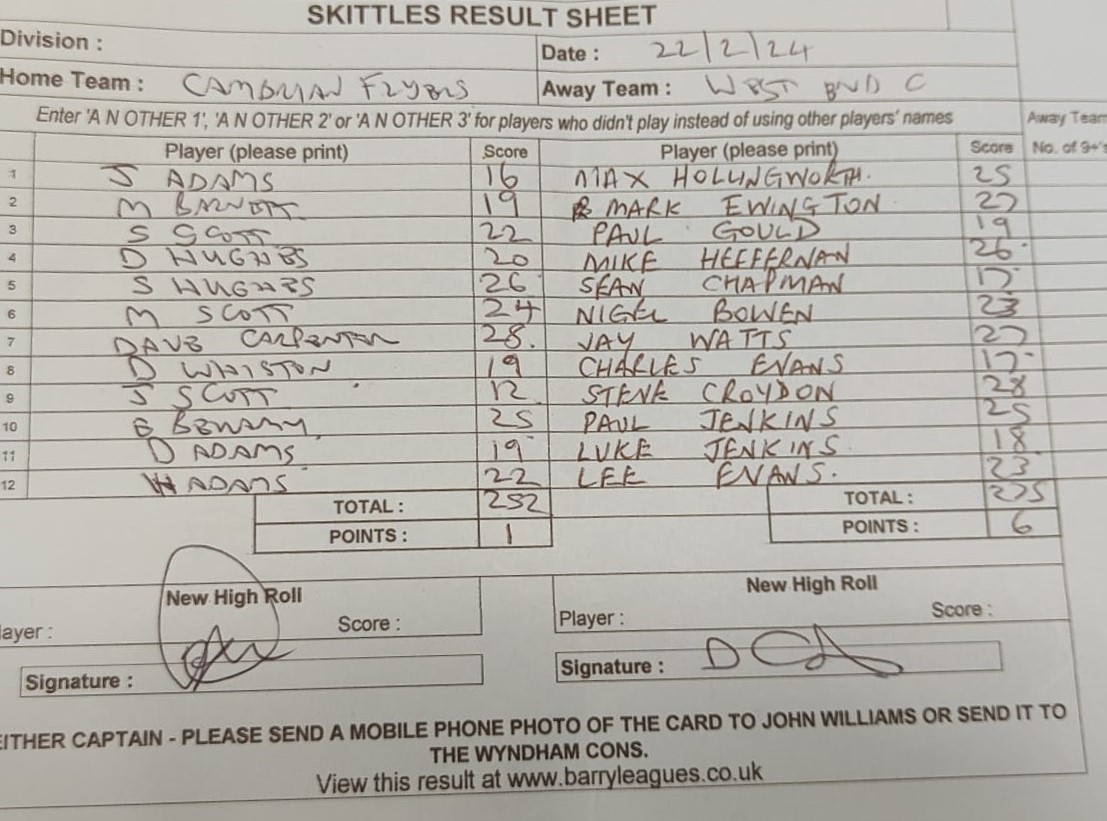 SKITTLES RESULT SHEET
Division :
Date : 22/2/24
Home Team : CAMBRIAN FLYERS Away Team : WEST END C
Enter 'A N OTHER 1', 'A N OTHER 2' or 'A N OTHER 3' for players who didn't play instead of using other players' names Away Team
Player (please print) Score Player (please print) Score No. of 9+'s
1 J ADAMS 16 MAX HOLLINGWORTH. 25
2 M BARNETT 19 MARK EWINGTON 27
3 S SCOTT 22 PAUL GOULD 19
4 D HUGHES 20 MIKE HEFFERNAN 26
5 S HUGHES 26 SEAN CHAPMAN 17
6 M SCOTT 24 NIGEL BOWEN 23
7 DAVE CARPENTER 28. JAY WATTS 27
8 D WHISTON 19 CHARLES EVANS 17
9 J SCOTT 12 STEVE CROYDON 28
10 25 PAUL JENKINS 25
11 D ADAMS 19 LUKE JENKINS 18
12 W ADAMS 22 LEE EVANS. 23
TOTAL : 252 TOTAL : 275
POINTS : 1 POINTS : 6
New High Roll New High Roll
layer : Score : Player : Score :
Signature : Signature :
EITHER CAPTAIN - PLEASE SEND A MOBILE PHONE PHOTO OF THE CARD TO JOHN WILLIAMS OR SEND IT TO
THE WYNDHAM CONS.
View this result at www.barryleagues.co.uk